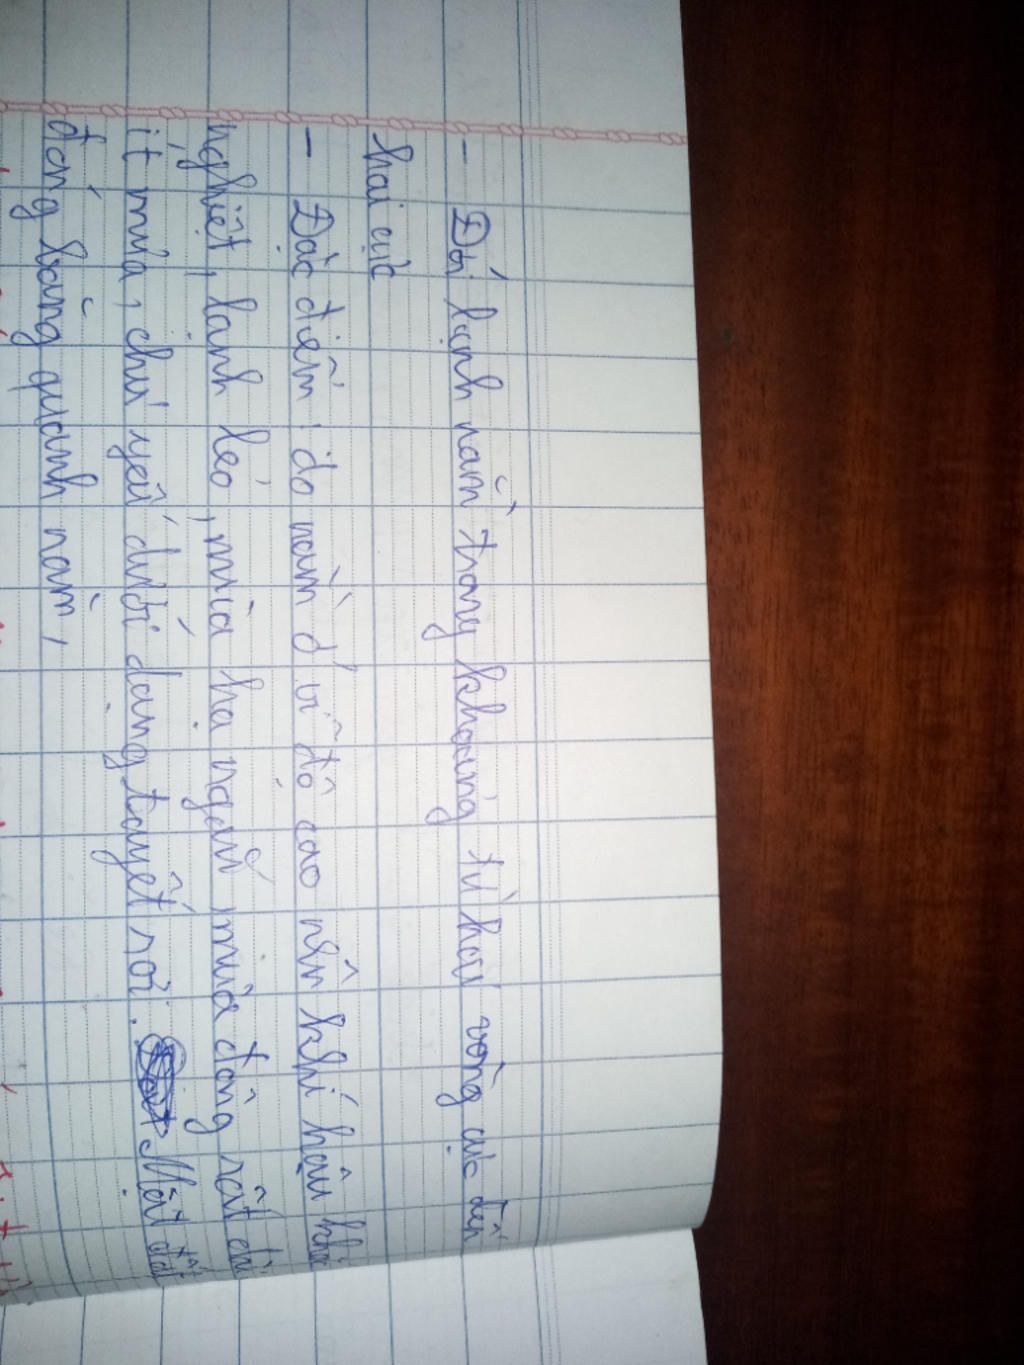 - Đới lạnh nằm trong khoảng từ hai vòng cực đến
hai cực
- Đặc điểm: do nằm ở vĩ độ cao nên khí hậu khắc
nghiệt, lạnh lẽo, mùa hạ ngắn mùa đông rất dài
ít mưa, chủ yếu dưới dạng tuyết rơi. Mặt đất
đóng băng quanh năm,